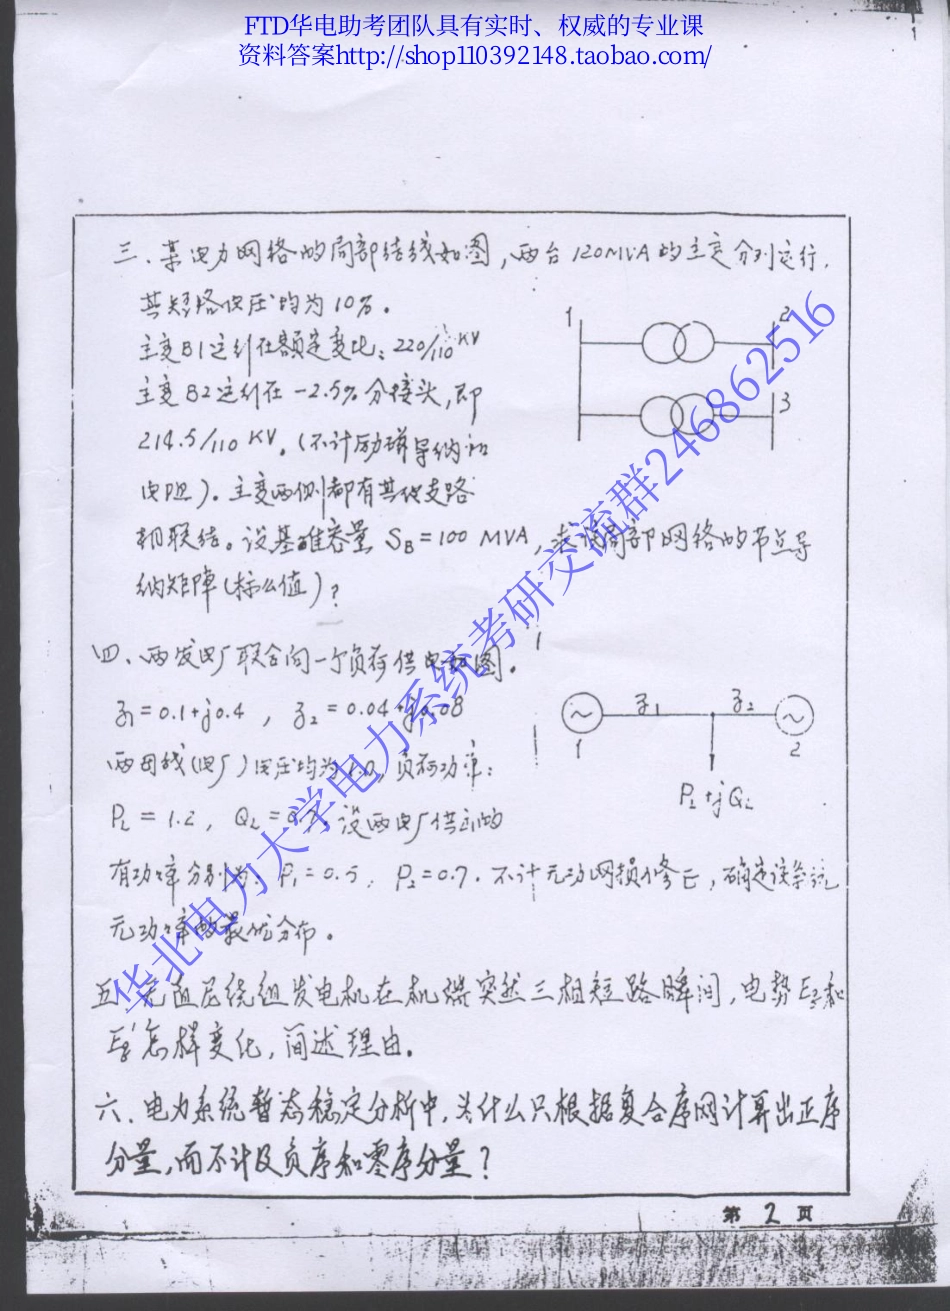 FTD华电助考团队具有实时、权威的专业课
资料答案http://shop110392148.taobao.com/
三、某电力网络的局部结线如图,两台120MVA的主变分列运行,
其短路电压均为10%。
主变B1运行在额定变比:220/110 KV
主变B2运行在-2.5%分接头,即
214.5/110 KV。(不计励磁导纳和
电阻)。主变两侧都有其他支路
相联结。设基准容量 SB=100 MVA,求该局部网络的节点导
纳矩阵(标么值)?
1
2
3
四、两发电厂联合向一个负荷供电如图。
z1=0.1+j0.4 , z2=0.04+j0.08
两母线(电厂)电压均为1.0,负荷功率:
PL = 1.2, QL = 0.7。设两电厂供出的
有功功率分别为 P1=0.5, P2=0.7。不计无功网损修正,确定该系统
无功功率的最优分布。
z1 z2
1 2
PL+jQL
五、无阻尼绕组发电机在机端突然三相短路瞬间,电势Eq和
Eq'怎样变化,简述理由。
六、电力系统暂态稳定分析中,为什么只根据复合序网计算出正序
分量,而不计及负序和零序分量?
第 2 页
华北电力大学电力系统考研交流群246862516